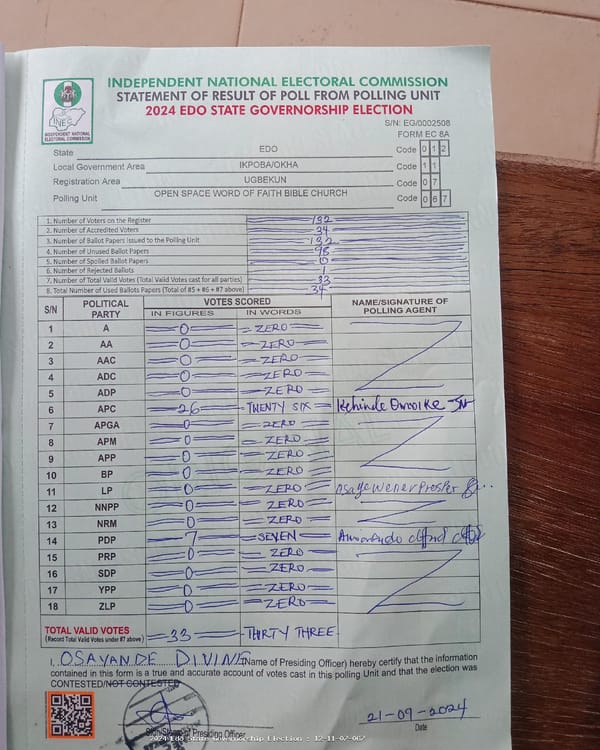 INDEPENDENT NATIONAL ELECTORAL COMMISSION
STATEMENT OF RESULT OF POLL FROM POLLING UNIT
2024 EDO STATE GOVERNORSHIP ELECTION
INEC
INDEPENDENT NATIONAL ELECTORAL COMMISSION
S/N: EG/0002508
FORM EC 8A
State EDO Code 0 1 2
Local Government Area IKPOBA/OKHA Code 1 1
Registration Area UGBEKUN Code 0 7
Polling Unit OPEN SPACE WORD OF FAITH BIBLE CHURCH Code 0 6 7
1. Number of Voters on the Register 132
2. Number of Accredited Voters 34
3. Number of Ballot Papers Issued to the Polling Unit 132
4. Number of Unused Ballot Papers 98
5. Number of Spoiled Ballot Papers 0
6. Number of Rejected Ballots 1
7. Number of Total Valid Votes (Total Valid Votes cast for all parties) 33
8. Total Number of Used Ballots Papers (Total of #5 + #6 + #7 above) 34
S/N POLITICAL PARTY VOTES SCORED NAME/SIGNATURE OF POLLING AGENT
IN FIGURES IN WORDS
1 A 0 ZERO
2 AA 0 ZERO
3 AAC 0 ZERO
4 ADC 0 ZERO
5 ADP 0 ZERO
6 APC 26 TWENTY SIX Kehinde
7 APGA 0 ZERO
8 APM 0 ZERO
9 APP 0 ZERO
10 BP 0 ZERO
11 LP 0 ZERO
12 NNPP 0 ZERO
13 NRM 0 ZERO
14 PDP 7 SEVEN
15 PRP 0 ZERO
16 SDP 0 ZERO
17 YPP 0 ZERO
18 ZLP 0 ZERO
TOTAL VALID VOTES
(Record Total Valid Votes under #7 above) 33 THIRTY THREE
I, OSAYANDE DIVINE (Name of Presiding Officer) hereby certify that the information
contained in this form is a true and accurate account of votes cast in this polling Unit and that the election was
CONTESTED/NOT CONTESTED
21-09-2024
Presiding Officer Date
2024 Edo State Governorship Election : 12-11-07-067